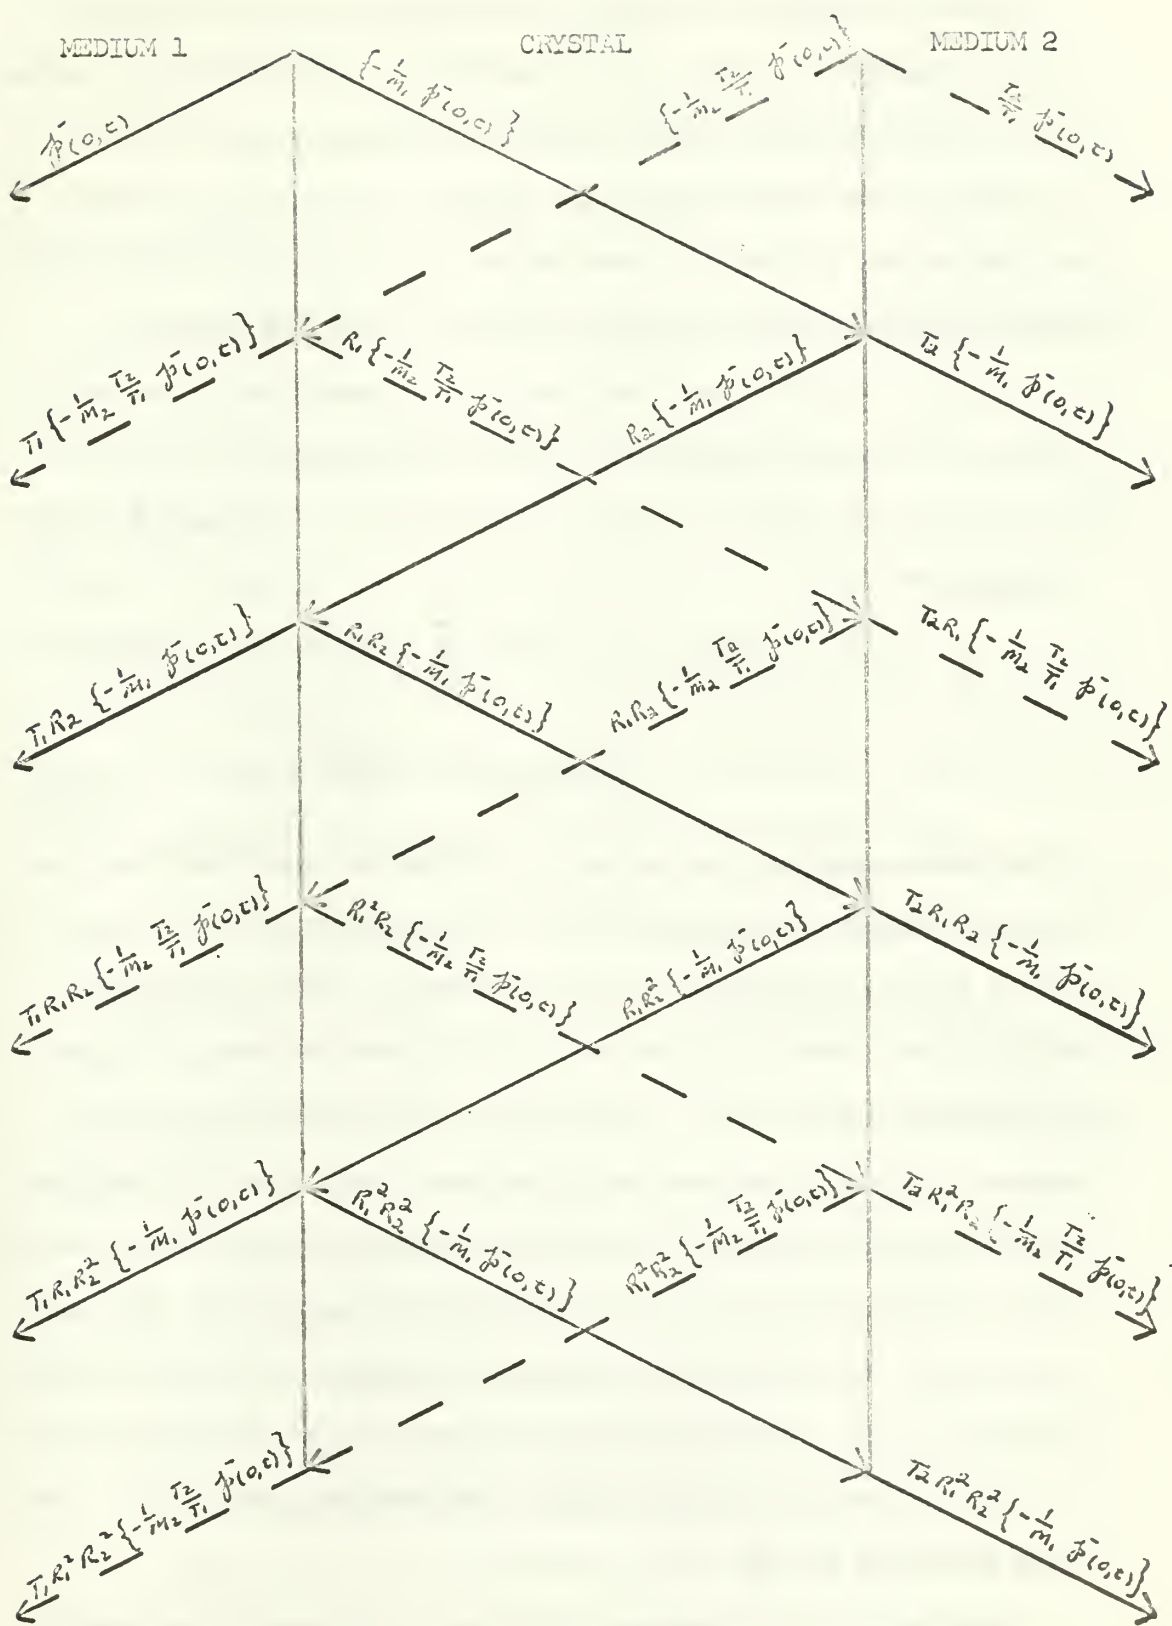 MEDIUM 1 CRYSTAL MEDIUM 2
p̄(0,t)
{-1/m₁ p̄(0,t)}
{-1/m₂ T₂/T₁ p̄(0,t)}
T₂/T₁ p̄(0,t)
T₁{-1/m₂ T₂/T₁ p̄(0,t)}
R₁{-1/m₂ T₂/T₁ p̄(0,t)}
R₂{-1/m₁ p̄(0,t)}
T₂{-1/m₁ p̄(0,t)}
T₁R₂{-1/m₁ p̄(0,t)}
R₁R₂{-1/m₁ p̄(0,t)}
R₁R₂{-1/m₂ T₂/T₁ p̄(0,t)}
T₂R₁{-1/m₂ T₂/T₁ p̄(0,t)}
T₁R₁R₂{-1/m₂ T₂/T₁ p̄(0,t)}
R₁²R₂{-1/m₂ T₂/T₁ p̄(0,t)}
R₁R₂²{-1/m₁ p̄(0,t)}
T₂R₁R₂{-1/m₁ p̄(0,t)}
T₁R₁R₂²{-1/m₁ p̄(0,t)}
R₁²R₂²{-1/m₁ p̄(0,t)}
R₁²R₂²{-1/m₂ T₂/T₁ p̄(0,t)}
T₂R₁²R₂{-1/m₂ T₂/T₁ p̄(0,t)}
T₁R₁²R₂²{-1/m₂ T₂/T₁ p̄(0,t)}
T₂R₁²R₂²{-1/m₁ p̄(0,t)}